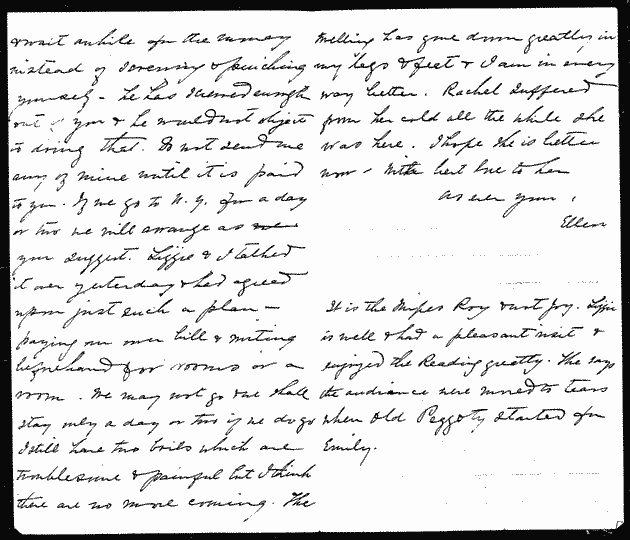 & wait awhile for the money
instead of screwing & pinching
yourself - he has screwed enough
out of you & he would not object
to doing that. Do not send me
any of mine until it is paid
to you. If we go to N. Y. for a day
or two we will arrange as
you suggest. Lizzie & I talked
it over yesterday & had agreed
upon just such a plan -
paying our own bill & writing
beforehand for rooms or a
room. We may not go & we shall
stay only a day or two if we do go
I still have two boils which are
troublesome & painful but I think
there are no more coming. The
swelling has gone down greatly in
my legs & feet & I am in every
way better. Rachel suffered
from her cold all the while she
was here. I hope she is better
now - With best love to her
as ever your,
Ellen
It is the Misses Roy & not Joy. Lizzie
is well & had a pleasant visit &
enjoyed the Reading greatly. She says
the audience were moved to tears
when Old Peggoty started for
Emily.